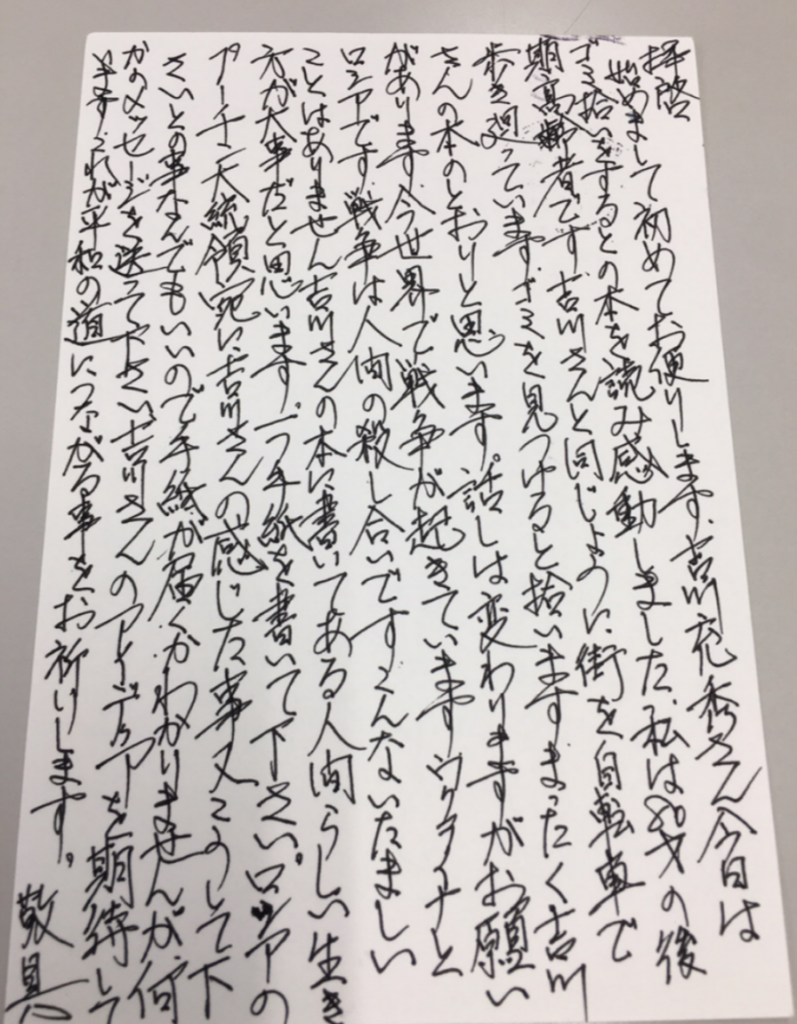 拝啓
始めまして初めてお便りします、吉川充秀さん今日は
ゴミ拾いをするとの本を読み感動しました、私は80才の後
期高齢者です吉川さんと同じように街を自転車で
歩き廻っています、ゴミを見つけると拾いますまったく吉川
さんの本のとおりと思います。話しは変わりますがお願い
があります、今世界で戦争が起きていますウクライナと
ロシアです戦争は人間の殺し合いですこんないたましい
ことはありません吉川さんの本に書いてある人間らしい生き
方が大事だと思います、一つ手紙を書いて下さい。ロシアの
プーチン大統領宛に吉川さんの感じた事又こうして下
さいとの事なんでもいいので手紙が届くかわかりませんが、何
かのメッセージを送って下さい吉川さんのアイデアを期待して
いますこれが平和の道につながる事をお祈りします。
敬具